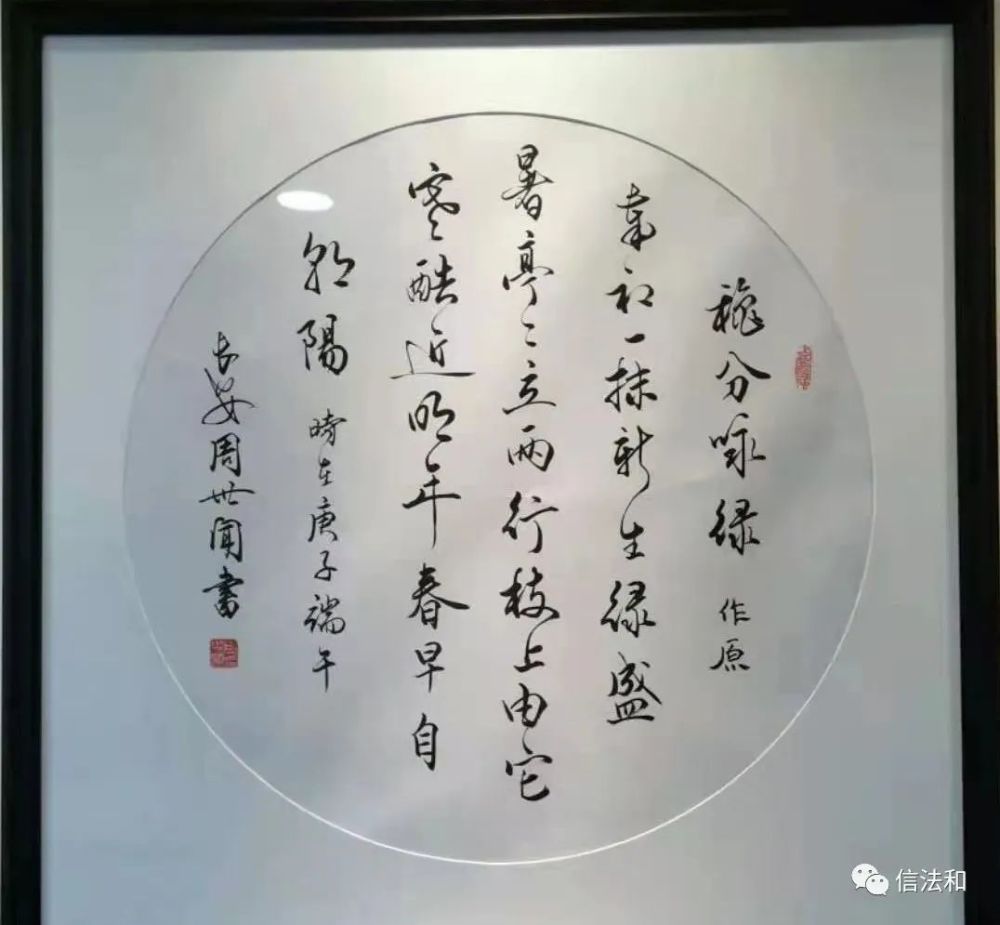 穐分咏绿 作原
初一抹新生绿盛
暑亭〻立两行枝上由它
寒酷近明年春早自
朝陽 時在庚子端午
长安周世闻書
信法和